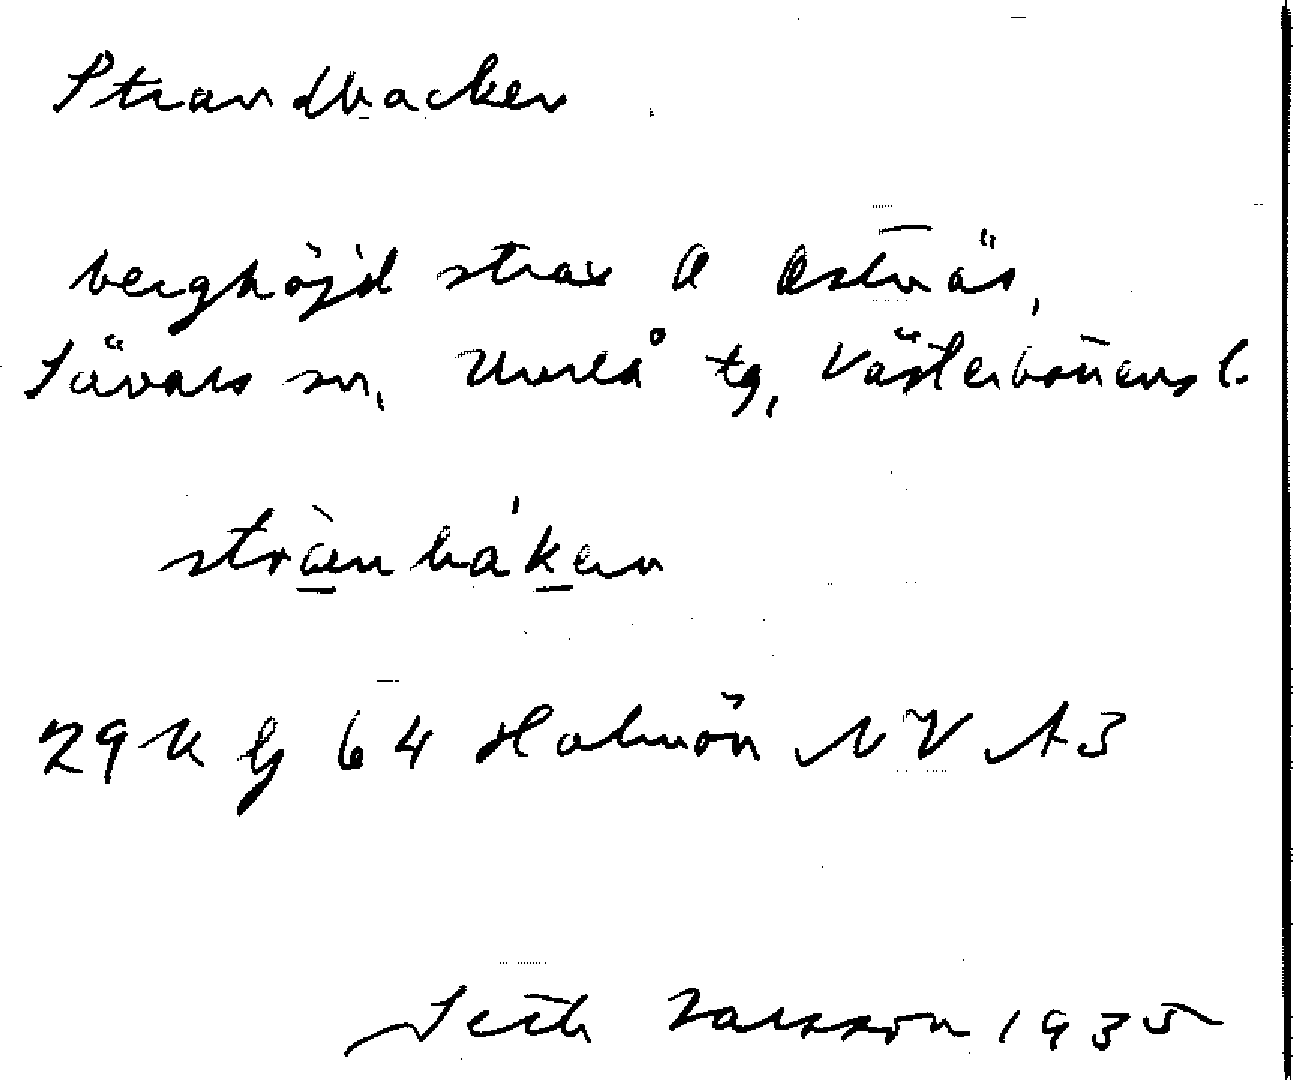 Strandbacken
berghöjd strax Ö Östnäs,
Sävars sn, Umeå tg, Västerbottens l.
29 K g 64 Holmön NV A3
Seth Larsson 1935